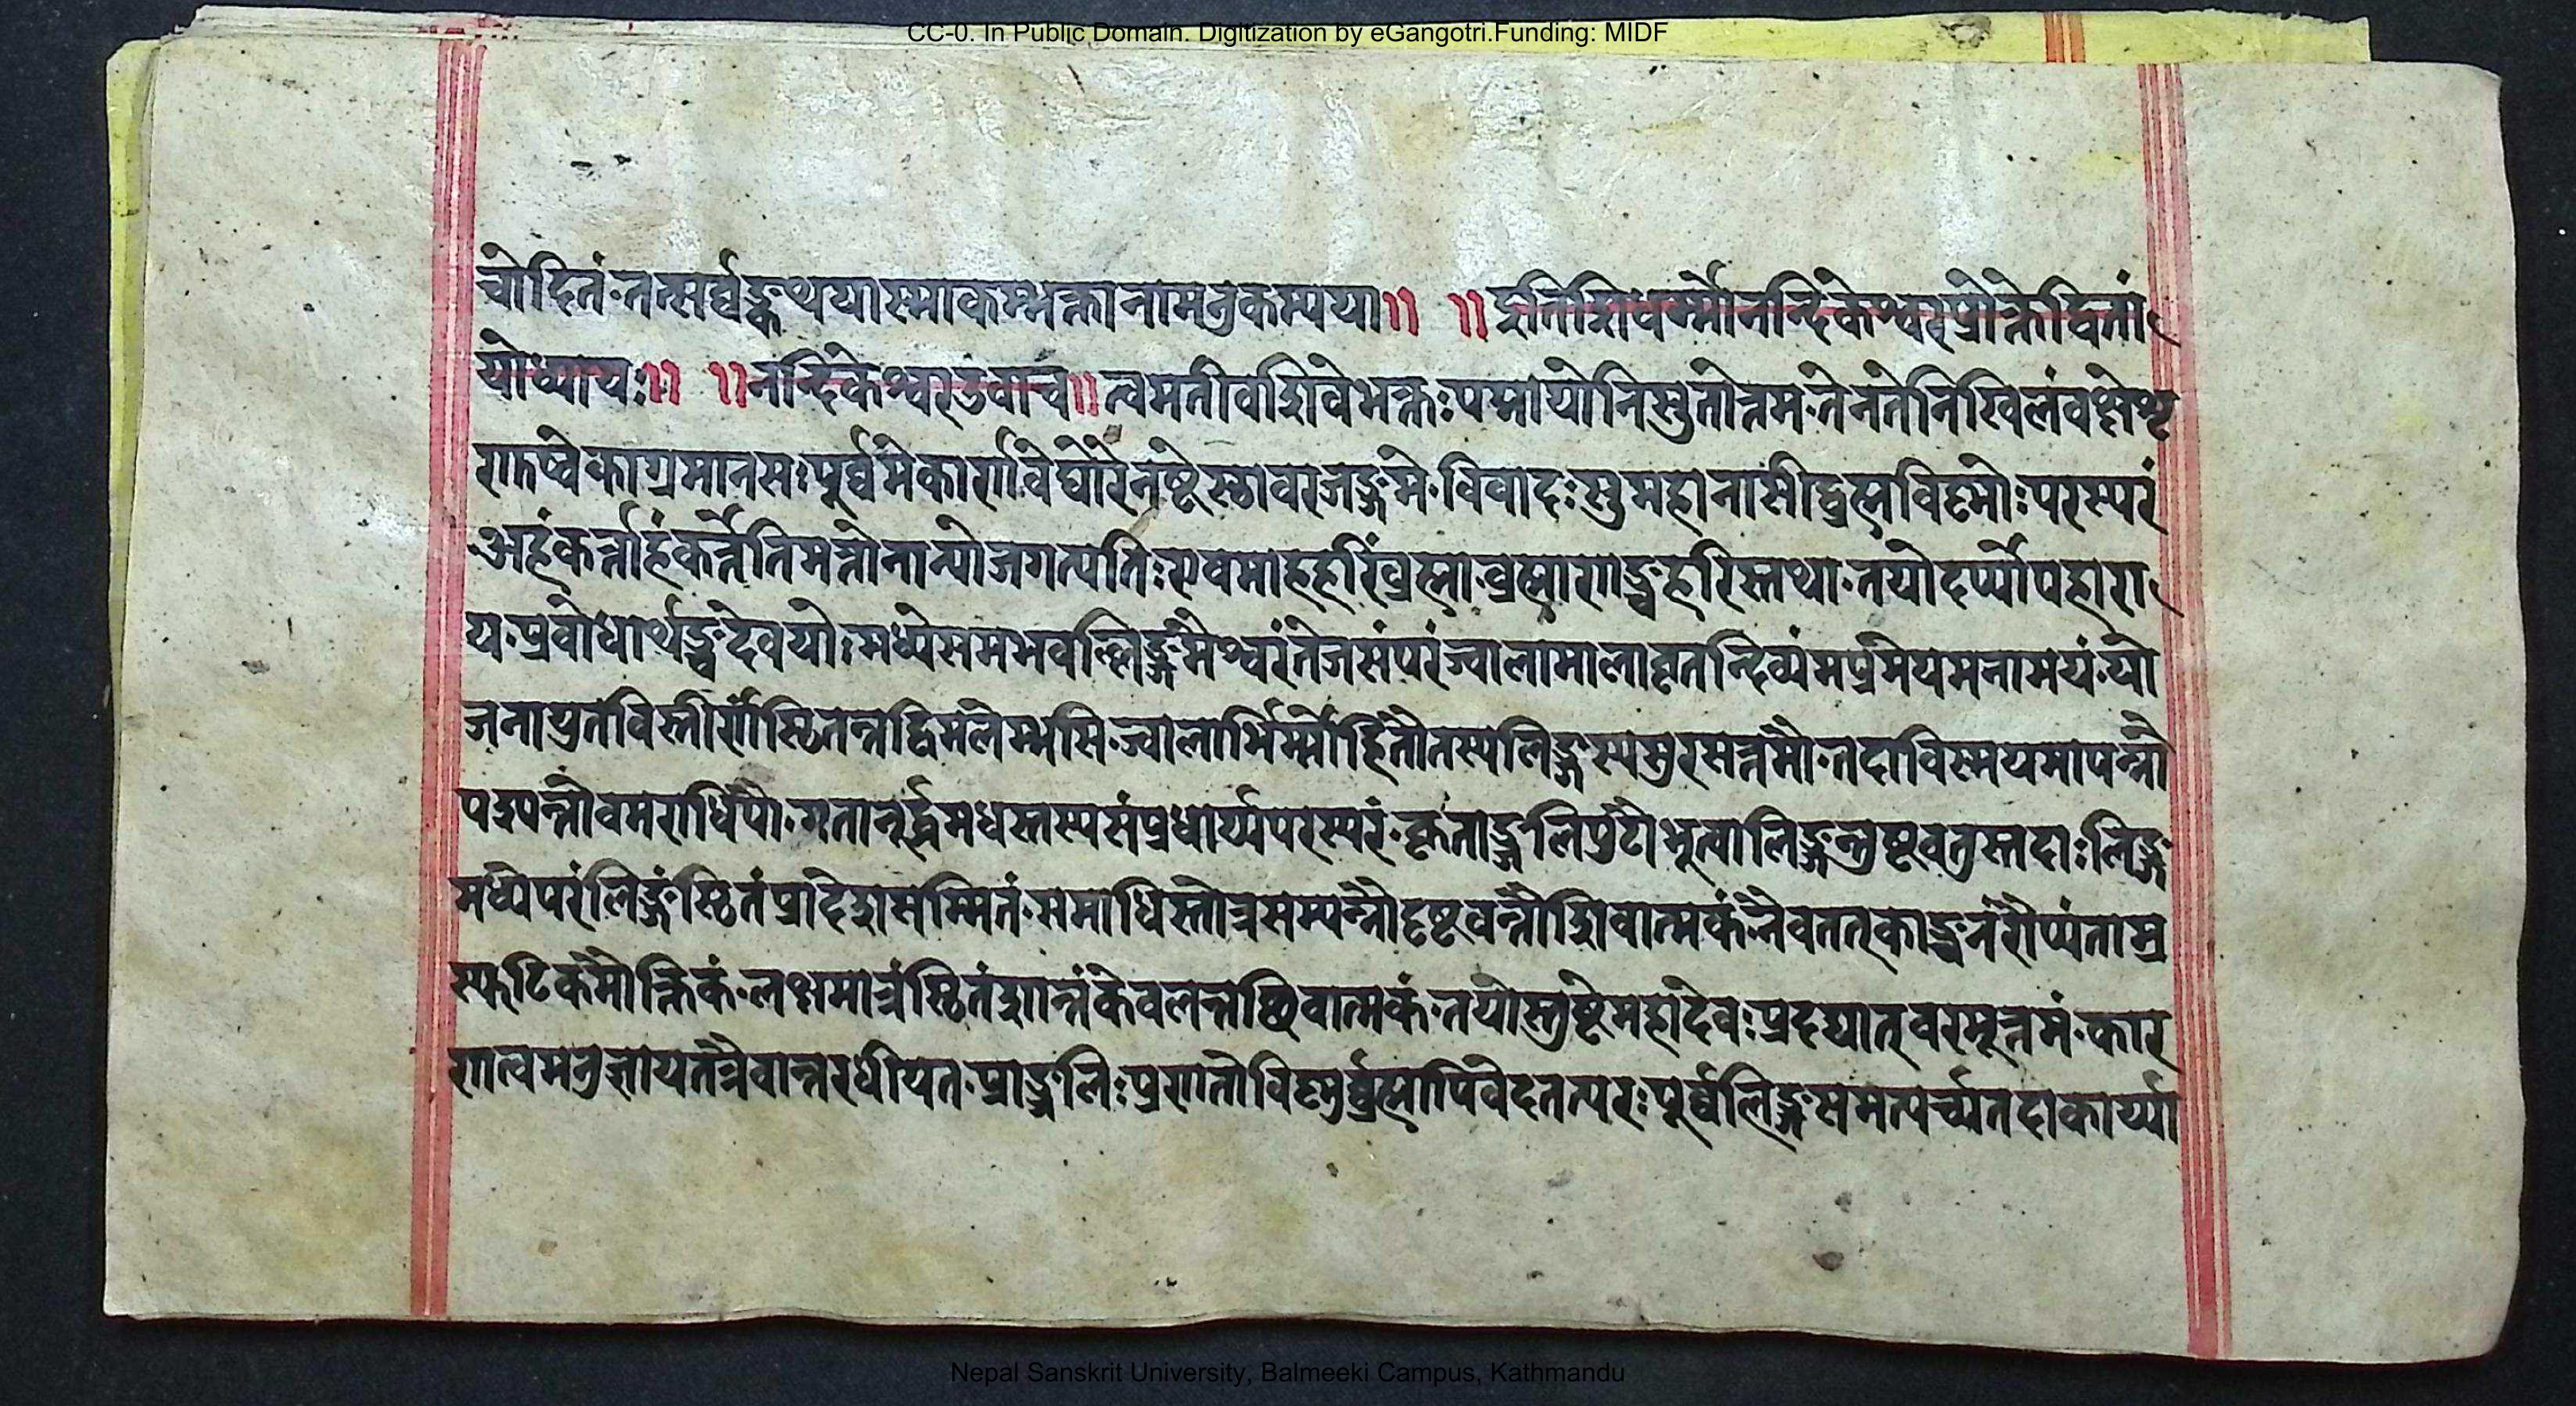 CC-0. In Public Domain. Digitization by eGangotri.Funding: MIDF
चोदितं॰तत्सर्व्वङ्कथयास्माकम्भक्तानामनुकम्पया॥ ॥इतिशिवधर्म्मेनन्दिकेश्वरप्रोक्तेद्विती
योध्यायः॥ ॥नन्दिकेश्वरउवाच॥त्वमतीवशिवेभक्तःपद्मयोनिसुतोत्तम॰तेनतेनिखिलंवक्ष्येशृ
णुष्वेकाग्रमानसःपूर्व्वमेकार्णवेघोरेनष्टेस्थावरजङ्गमे॰विवादःसुमहानासीद्ब्रह्मविष्णोःपरस्परं
अहंकर्त्ताहंकर्त्तेतिमत्तोनान्योजगत्पतिःएवमाहहरिंब्रह्मा॰ब्रह्माणञ्चहरिस्तथा॰तयोदर्प्पोपहारा
य॰प्रबोधार्थञ्चदेवयोःमध्येसमभवल्लिङ्गमैश्वरंतेजसंपरंज्वालामालावृतन्दिव्यंमप्रमेयमनामयं॰यो
जनायुतविस्तीर्णंस्थितन्तद्विमलेम्भसि॰ज्वालाभिर्म्मोहितौतस्यलिङ्गस्यसुरसत्तमौ॰तदाविस्मयमापन्नौ
गतानूर्द्ध्वमधस्तस्यसंप्रधार्य्यपरस्परं॰कृताञ्जलिपुटौभूत्वालिङ्गन्तुष्टवतुस्तदाःलिङ्ग
मध्येपरंलिङ्गंस्थितंप्रादेशसम्मितं॰समाधिस्तोत्रसम्पन्नौदृष्टवन्तौशिवात्मकं॰नैवततत्काञ्चनंरौप्यंताम्र
स्फटिकंमौक्तिकं॰लक्षमात्रंस्थितंशान्तंकेवलन्तच्छिवात्मकं॰तयोस्तुष्टेमहादेवःप्रदद्यात्वरमूत्तमं॰कार
णत्वमनुज्ञायतत्रैवान्तरधीयत॰प्राञ्जलिःप्रणतोविष्णुर्ब्रह्मापिवेदतत्परःपूर्व्वलिङ्गसमत्यर्च्यतदाकार्य्या
Nepal Sanskrit University, Balmeeki Campus, Kathmandu